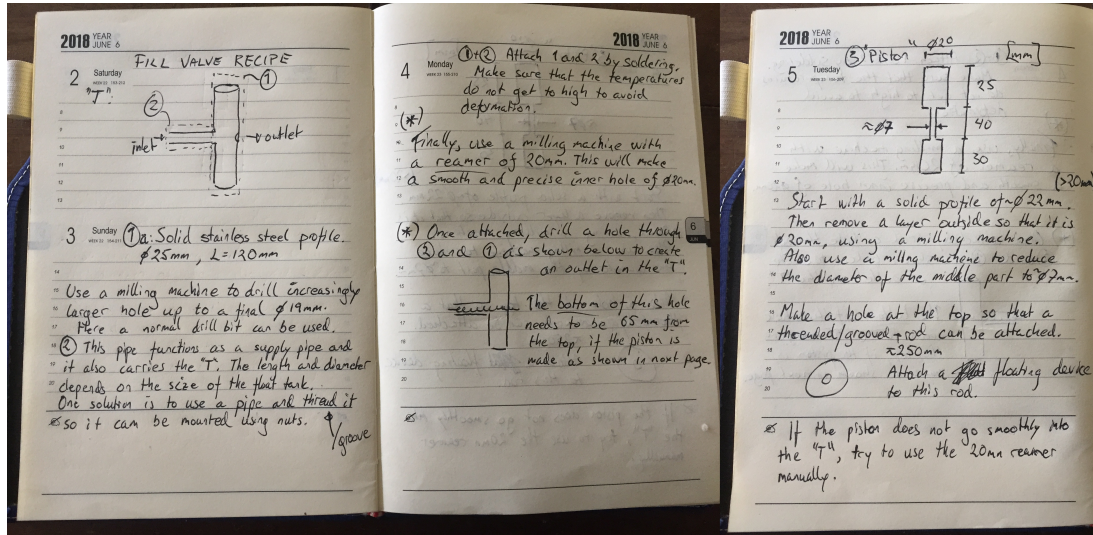 2018 YEAR
JUNE 6
FILL VALVE RECIPE
2 Saturday
"T":
1
2
inlet
outlet
3 Sunday
1a: Solid stainless steel profile.
ø25mm, L=130mm
Use a milling machine to drill increasingly
larger hole up to a final ø19mm.
Here a normal drill bit can be used.
2 This pipe functions as a supply pipe and
it also carries the "T". The length and diameter
depends on the size of the float tank.
One solution is to use a pipe and thread it
so it can be mounted using nuts.
/groove
2018 YEAR
JUNE 6
4 Monday
1+2 Attach 1 and 2 by soldering.
Make sure that the temperatures
do not get to high to avoid
deformation.
(*)
Finally, use a milling machine with
a reamer of 20mm. This will make
a smooth and precise inner hole of ø20mm.
(*) Once attached, drill a hole through
2 and 1 as shown below to create
an outlet in the "T".
The bottom of this hole
needs to be 65 mm from
the top, if the piston is
made as shown in next page.
6
JUN
2018 YEAR
JUNE 6
5 Tuesday
3 "Piston"
ø20
[mm]
25
≈ø7
40
30
(>20mm)
Start with a solid profile of ~ø22mm.
Then remove a layer outside so that it is
ø20mm, using a milling machine.
Also use a millng machene to reduce
the diameter of the middle part to ~ø7mm.
Make a hole at the top so that a
threended/grooved rod can be attached.
≈250mm
Attach a floating device
to this rod.
If the piston does not go smoothly into
the "T", try to use the 20mm reamer
manually.